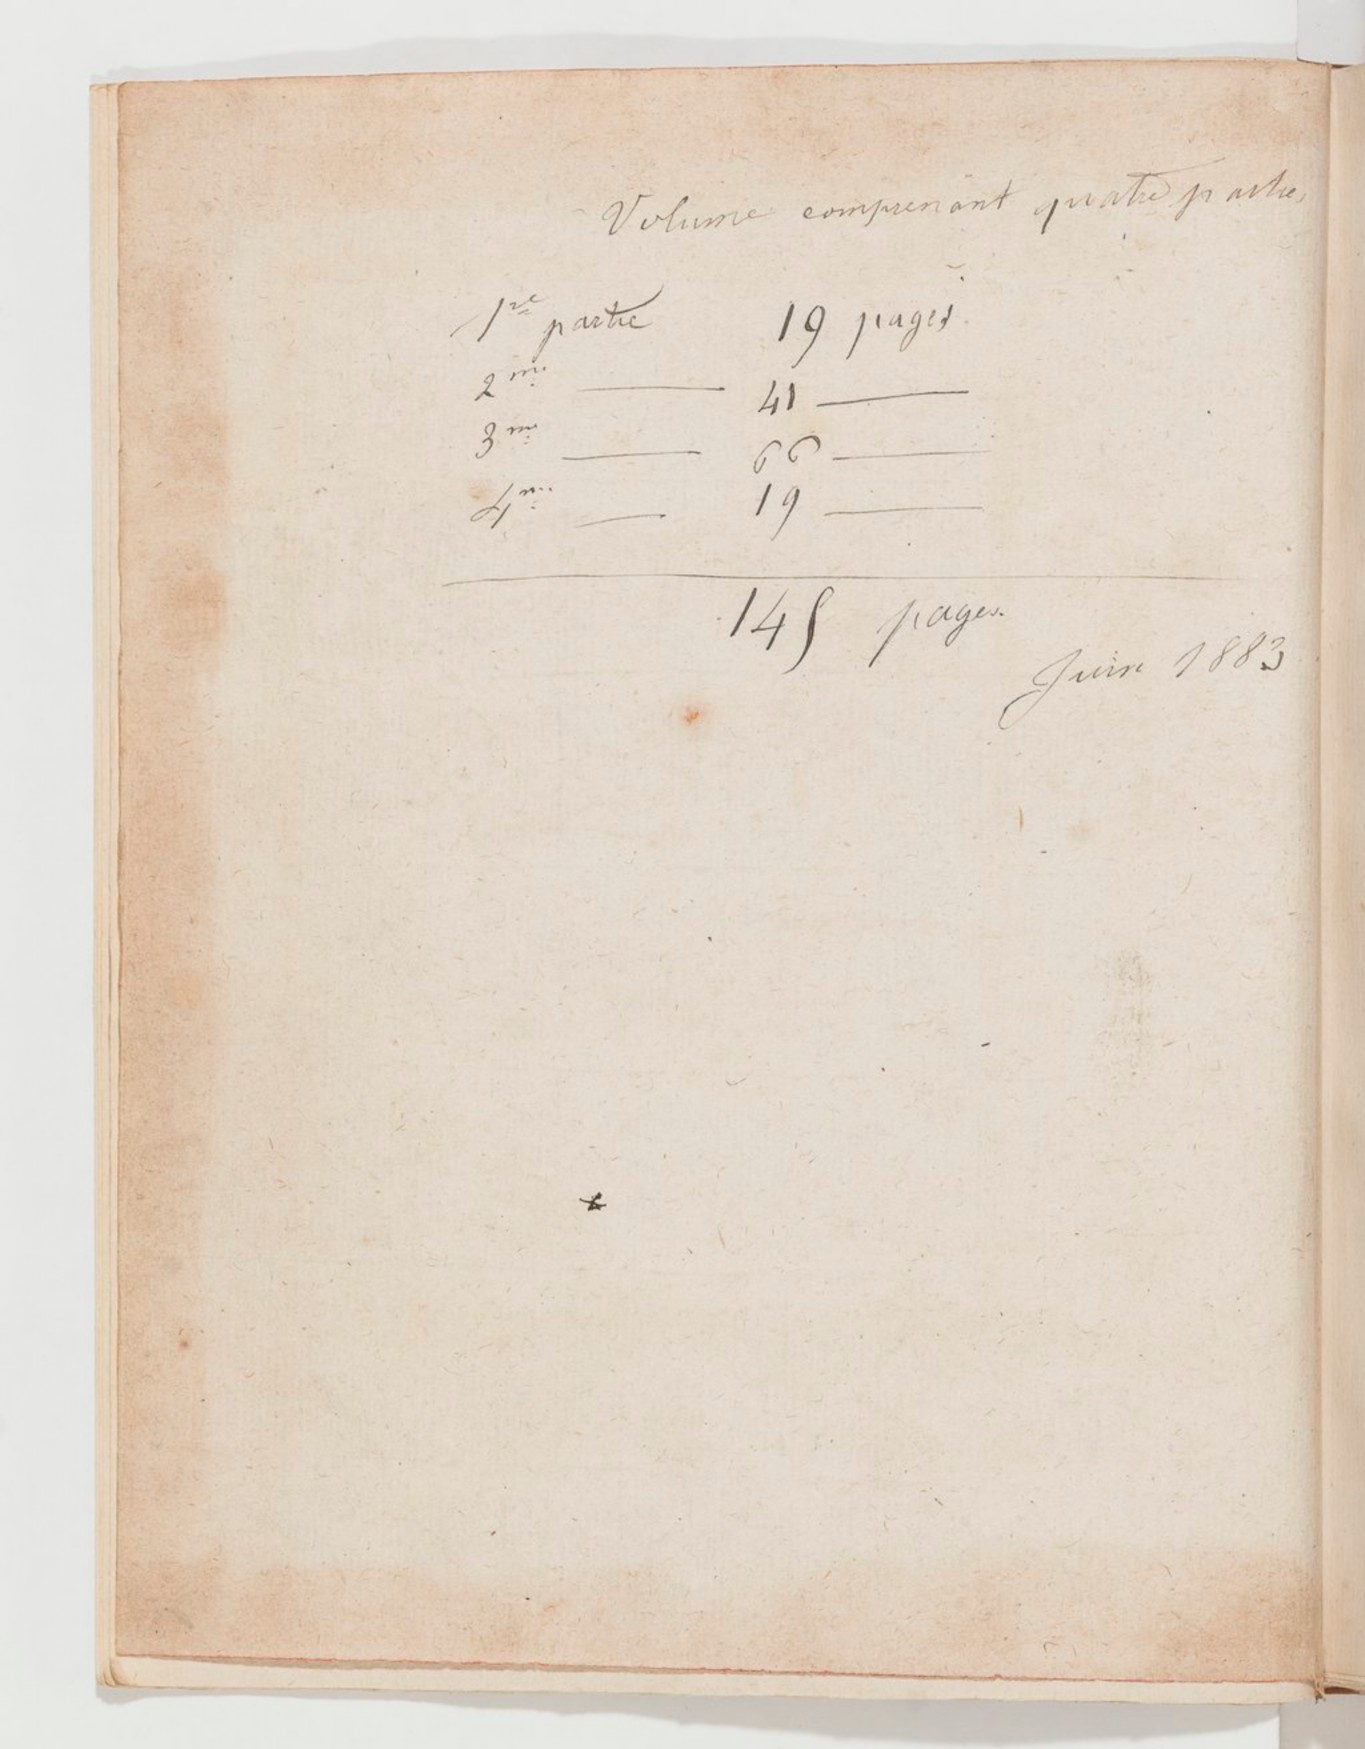 Volume comprenant quatre parties
1re partie 19 pages
2me — 41 —
3me — 66 —
4me — 19 —
145 pages.
Juin 1883